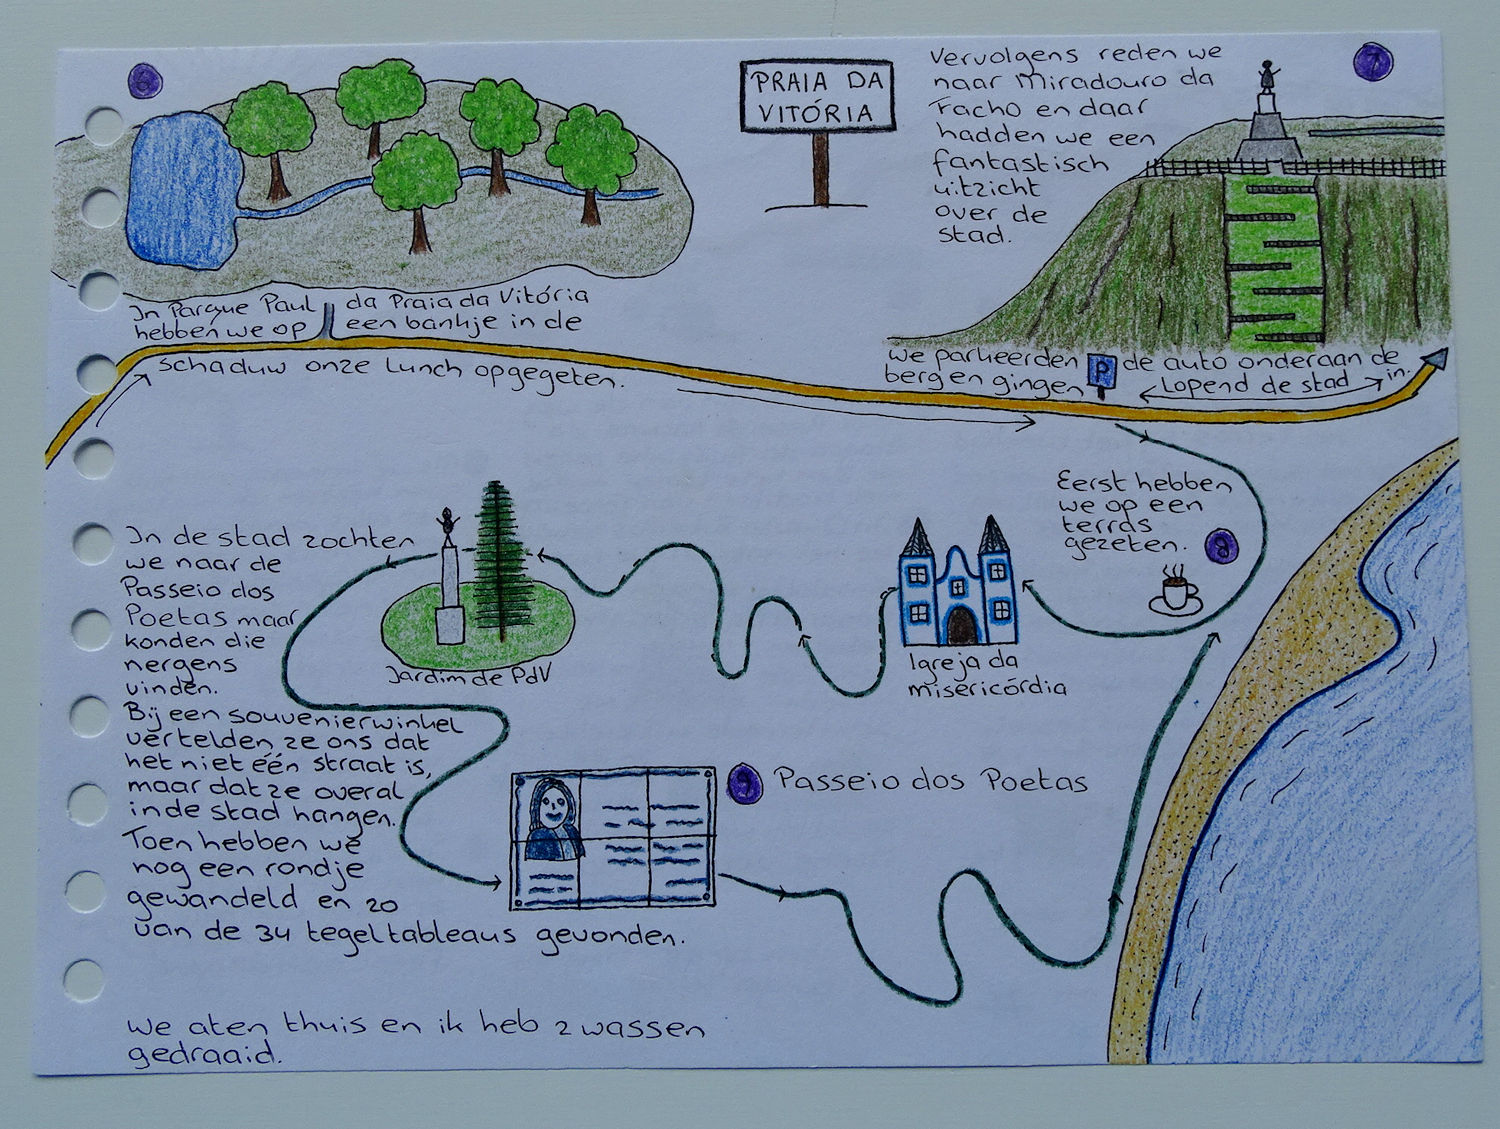 6
In Parque Paul da Praia da Vitória
hebben we op een bankje in de
schaduw onze lunch opgegeten.
PRAIA DA
VITÓRIA
7
Vervolgens reden we
naar Miradouro da
Facho en daar
hadden we een
fantastisch
uitzicht
over de
stad.
we parkeerden P de auto onderaan de
berg en gingen lopend de stad in.
Eerst hebben
we op een
terras
gezeten.
8
Igreja da
misericórdia
Jardim de PdV
In de stad zochten
we naar de
Passeio dos
Poetas maar
konden die
nergens
vinden.
Bij een souvenierwinkel
vertelden ze ons dat
het niet één straat is,
maar dat ze overal
in de stad hangen.
Toen hebben we
nog een rondje
gewandeld en 20
van de 34 tegeltableaus gevonden.
9 Passeio dos Poetas
we aten thuis en ik heb 2 wassen
gedraaid.